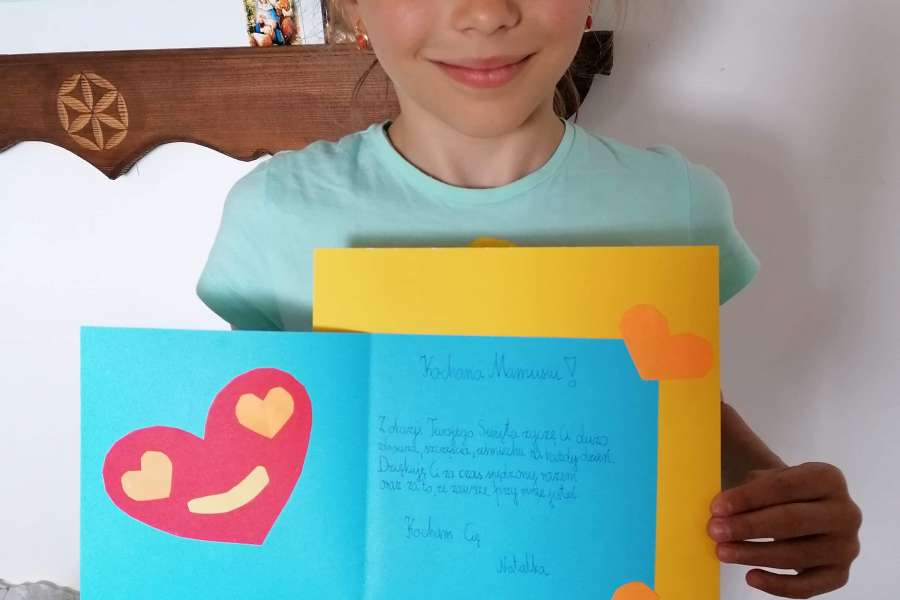 Kochana Mamusiu!
Z okazji Twojego Święta życzę Ci dużo
zdrowia, szczęścia, uśmiechu na każdy dzień.
Dziękuję Ci za czas spędzony razem
oraz za to, że zawsze przy mnie jesteś.
Kocham Cię
Natalka